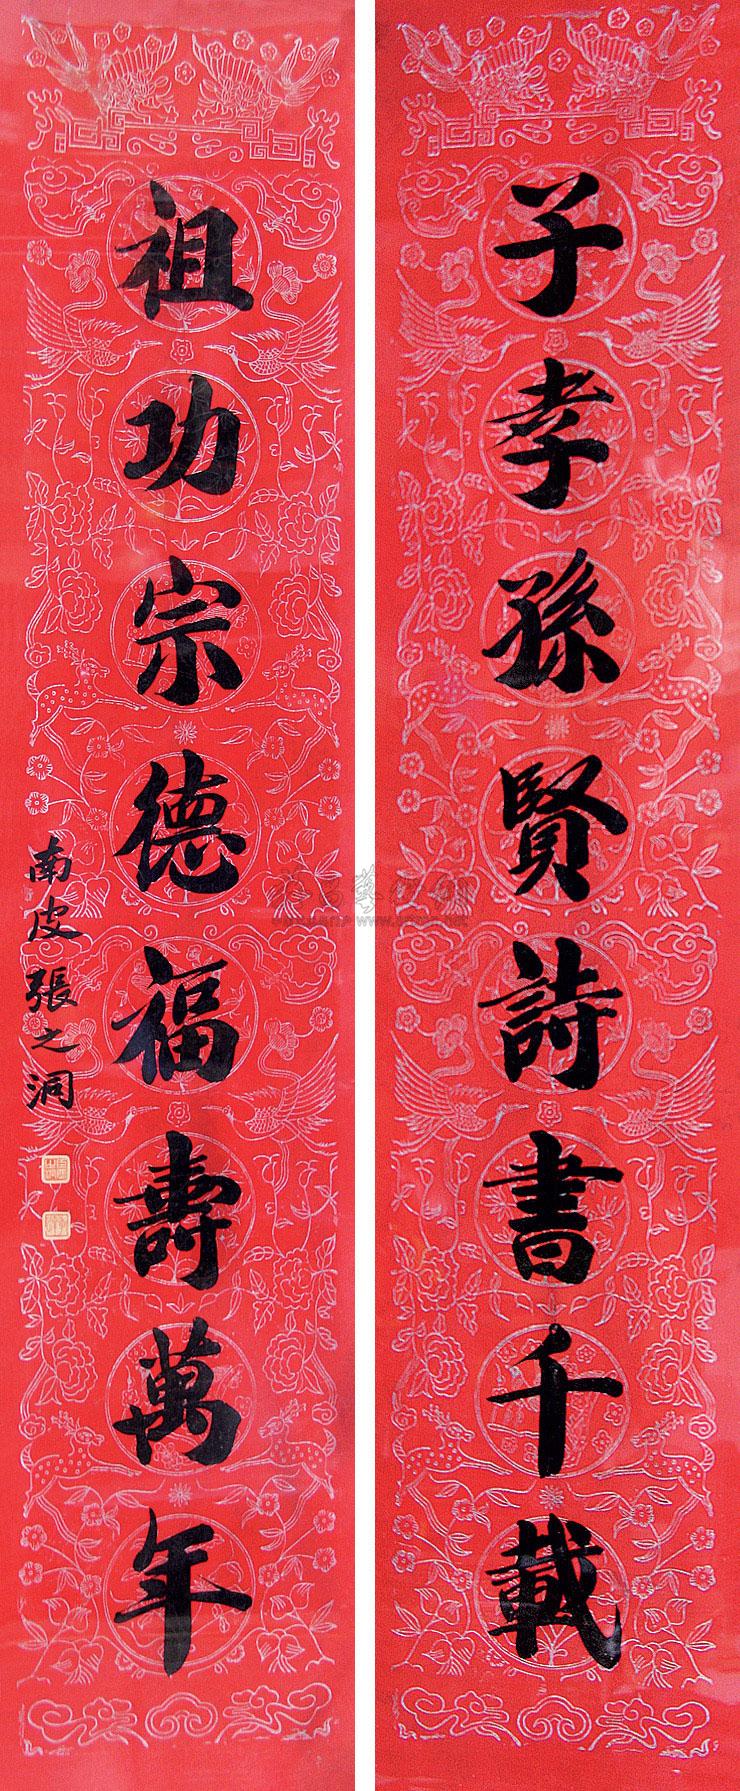 子孝孫賢詩書千載
祖功宗德福壽萬年
南皮張之洞